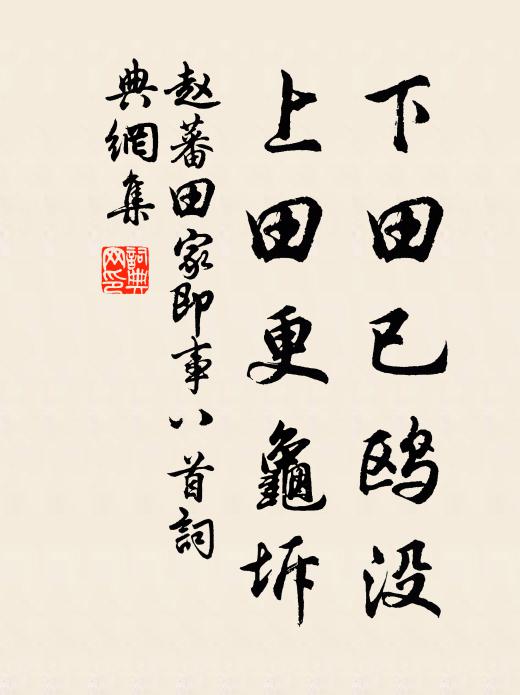 下田已鸥没
上田更龜坼
赵蕃田家即事八首詞
典網集
詞典
网印